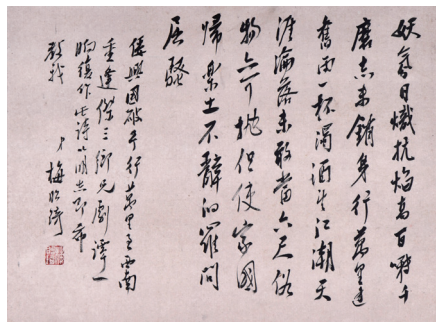 妖氛日熾抗焰高百戰千
磨志未銷身行萬里逢
舊雨一杯濁酒生江潮天
涯淪落未敢當六尺俗
物亦可拋但使家國
歸樂土不辭汨羅問
屈騷
倭興國破予行萬里至西南
重逢傑三鄉兄劇譚一
晌作此詩以明志希
教我 弟 梅貽琦